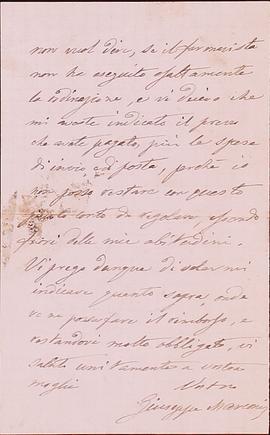 non vuol dire, se il farmacista
non ha eseguito esattamente
la ordinazione, e vi dicevo che
mi avete indicate il prezzo
che avete pagato, più la spesa
di invio, e di posta, perchè io
non posso restare con questo
conto da regolare, essendo
fuori delle mie abitudini.
Vi prego dunque di volermi
indicare quanto sopra, onde
ve ne possa fare il rimborso, e
restandovi molto obbligato, vi
saluto unitamente a vostra
moglie
Vostro
Giuseppe Marconi